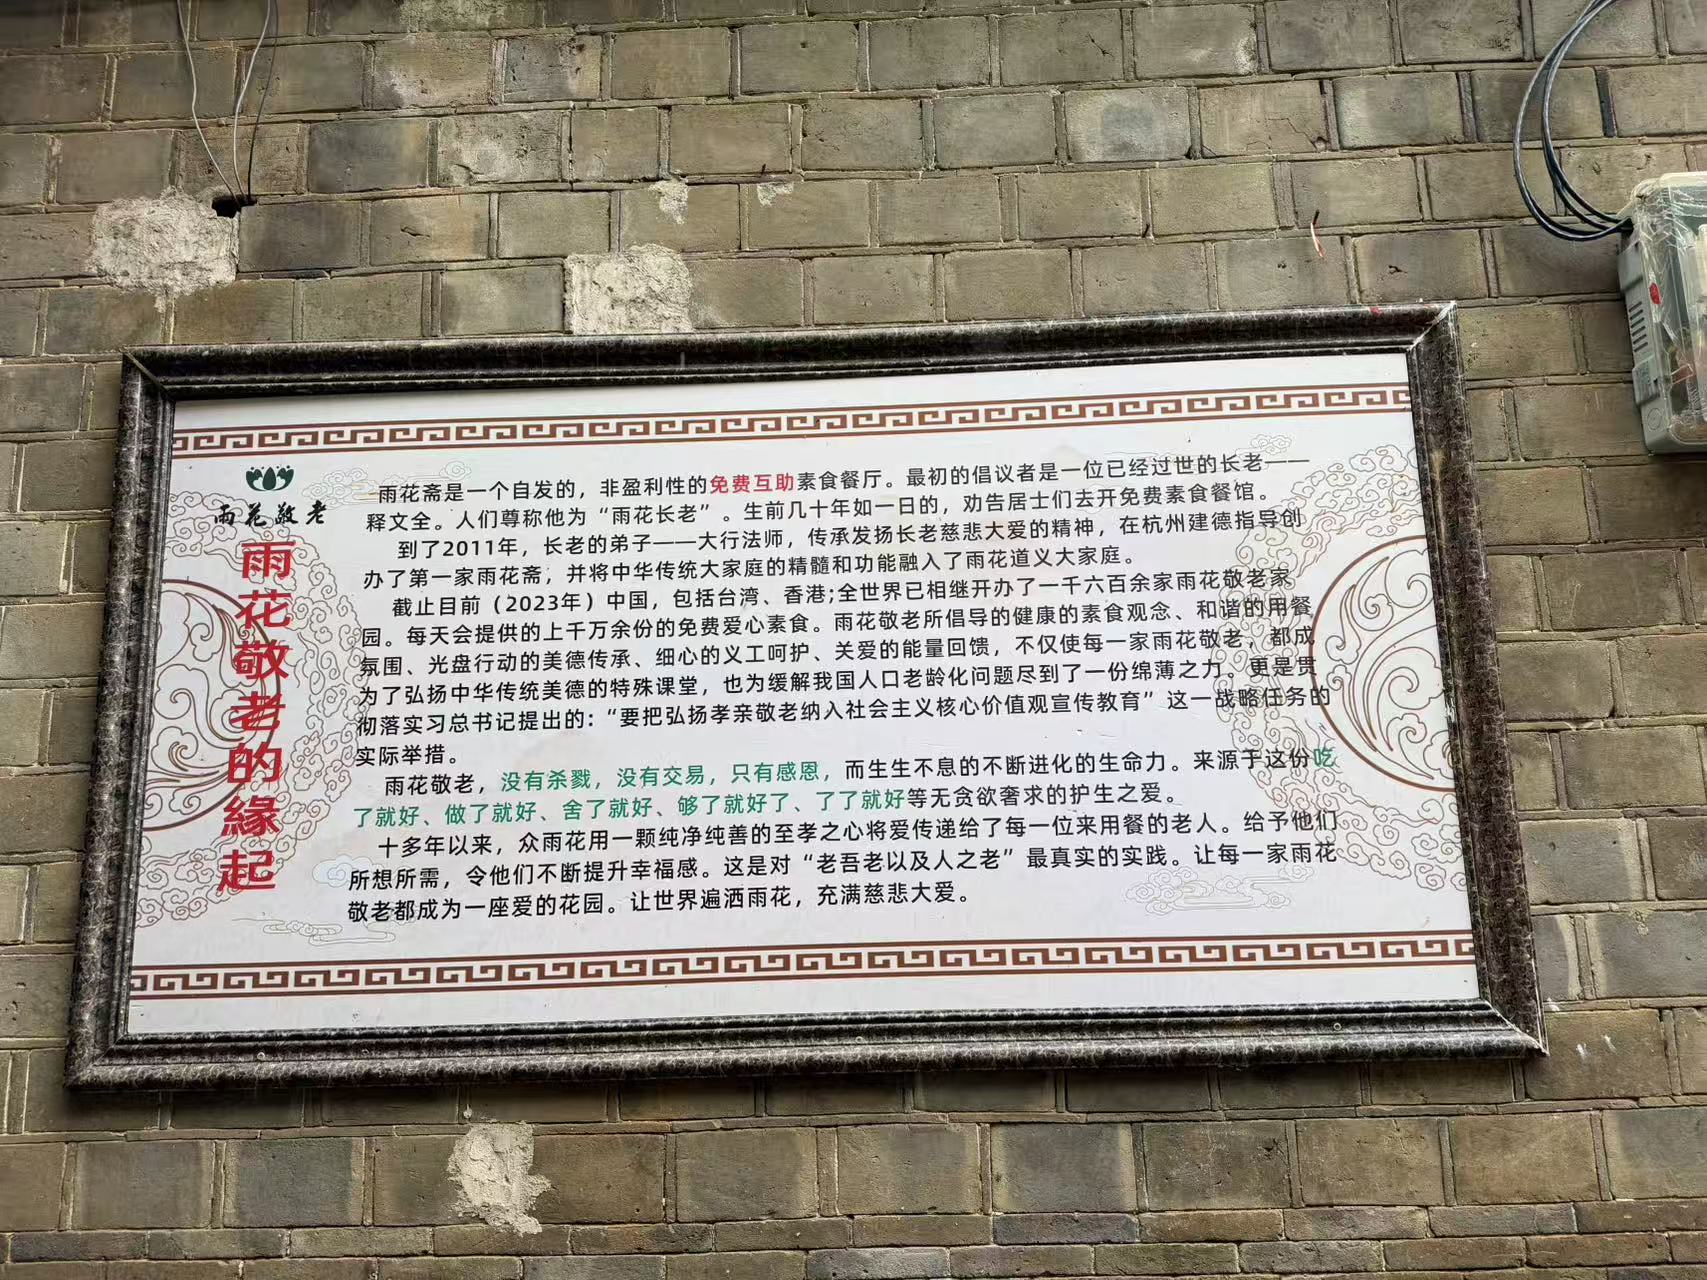 雨花敬老
雨花敬老的緣起
雨花斋是一个自发的，非盈利性的免费互助素食餐厅。最初的倡议者是一位已经过世的长老——
释文全。人们尊称他为“雨花长老”。生前几十年如一日的，劝告居士们去开免费素食餐馆。
到了2011年，长老的弟子——大行法师，传承发扬长老慈悲大爱的精神，在杭州建德指导创
办了第一家雨花斋，并将中华传统大家庭的精髓和功能融入了雨花道义大家庭。
截止目前（2023年）中国，包括台湾、香港;全世界已相继开办了一千六百余家雨花敬老家
园。每天会提供的上千万余份的免费爱心素食。雨花敬老所倡导的健康的素食观念、和谐的用餐
氛围、光盘行动的美德传承、细心的义工呵护、关爱的能量回馈，不仅使每一家雨花敬老，都成
为了弘扬中华传统美德的特殊课堂，也为缓解我国人口老龄化问题尽到了一份绵薄之力。更是贯
彻落实习总书记提出的：“要把弘扬孝亲敬老纳入社会主义核心价值观宣传教育”这一战略任务的
实际举措。
雨花敬老，没有杀戮，没有交易，只有感恩，而生生不息的不断进化的生命力。来源于这份吃
了就好、做了就好、舍了就好、够了就好了、了了就好等无贪欲奢求的护生之爱。
十多年以来，众雨花用一颗纯净纯善的至孝之心将爱传递给了每一位来用餐的老人。给予他们
所想所需，令他们不断提升幸福感。这是对“老吾老以及人之老”最真实的实践。让每一家雨花
敬老都成为一座爱的花园。让世界遍洒雨花，充满慈悲大爱。